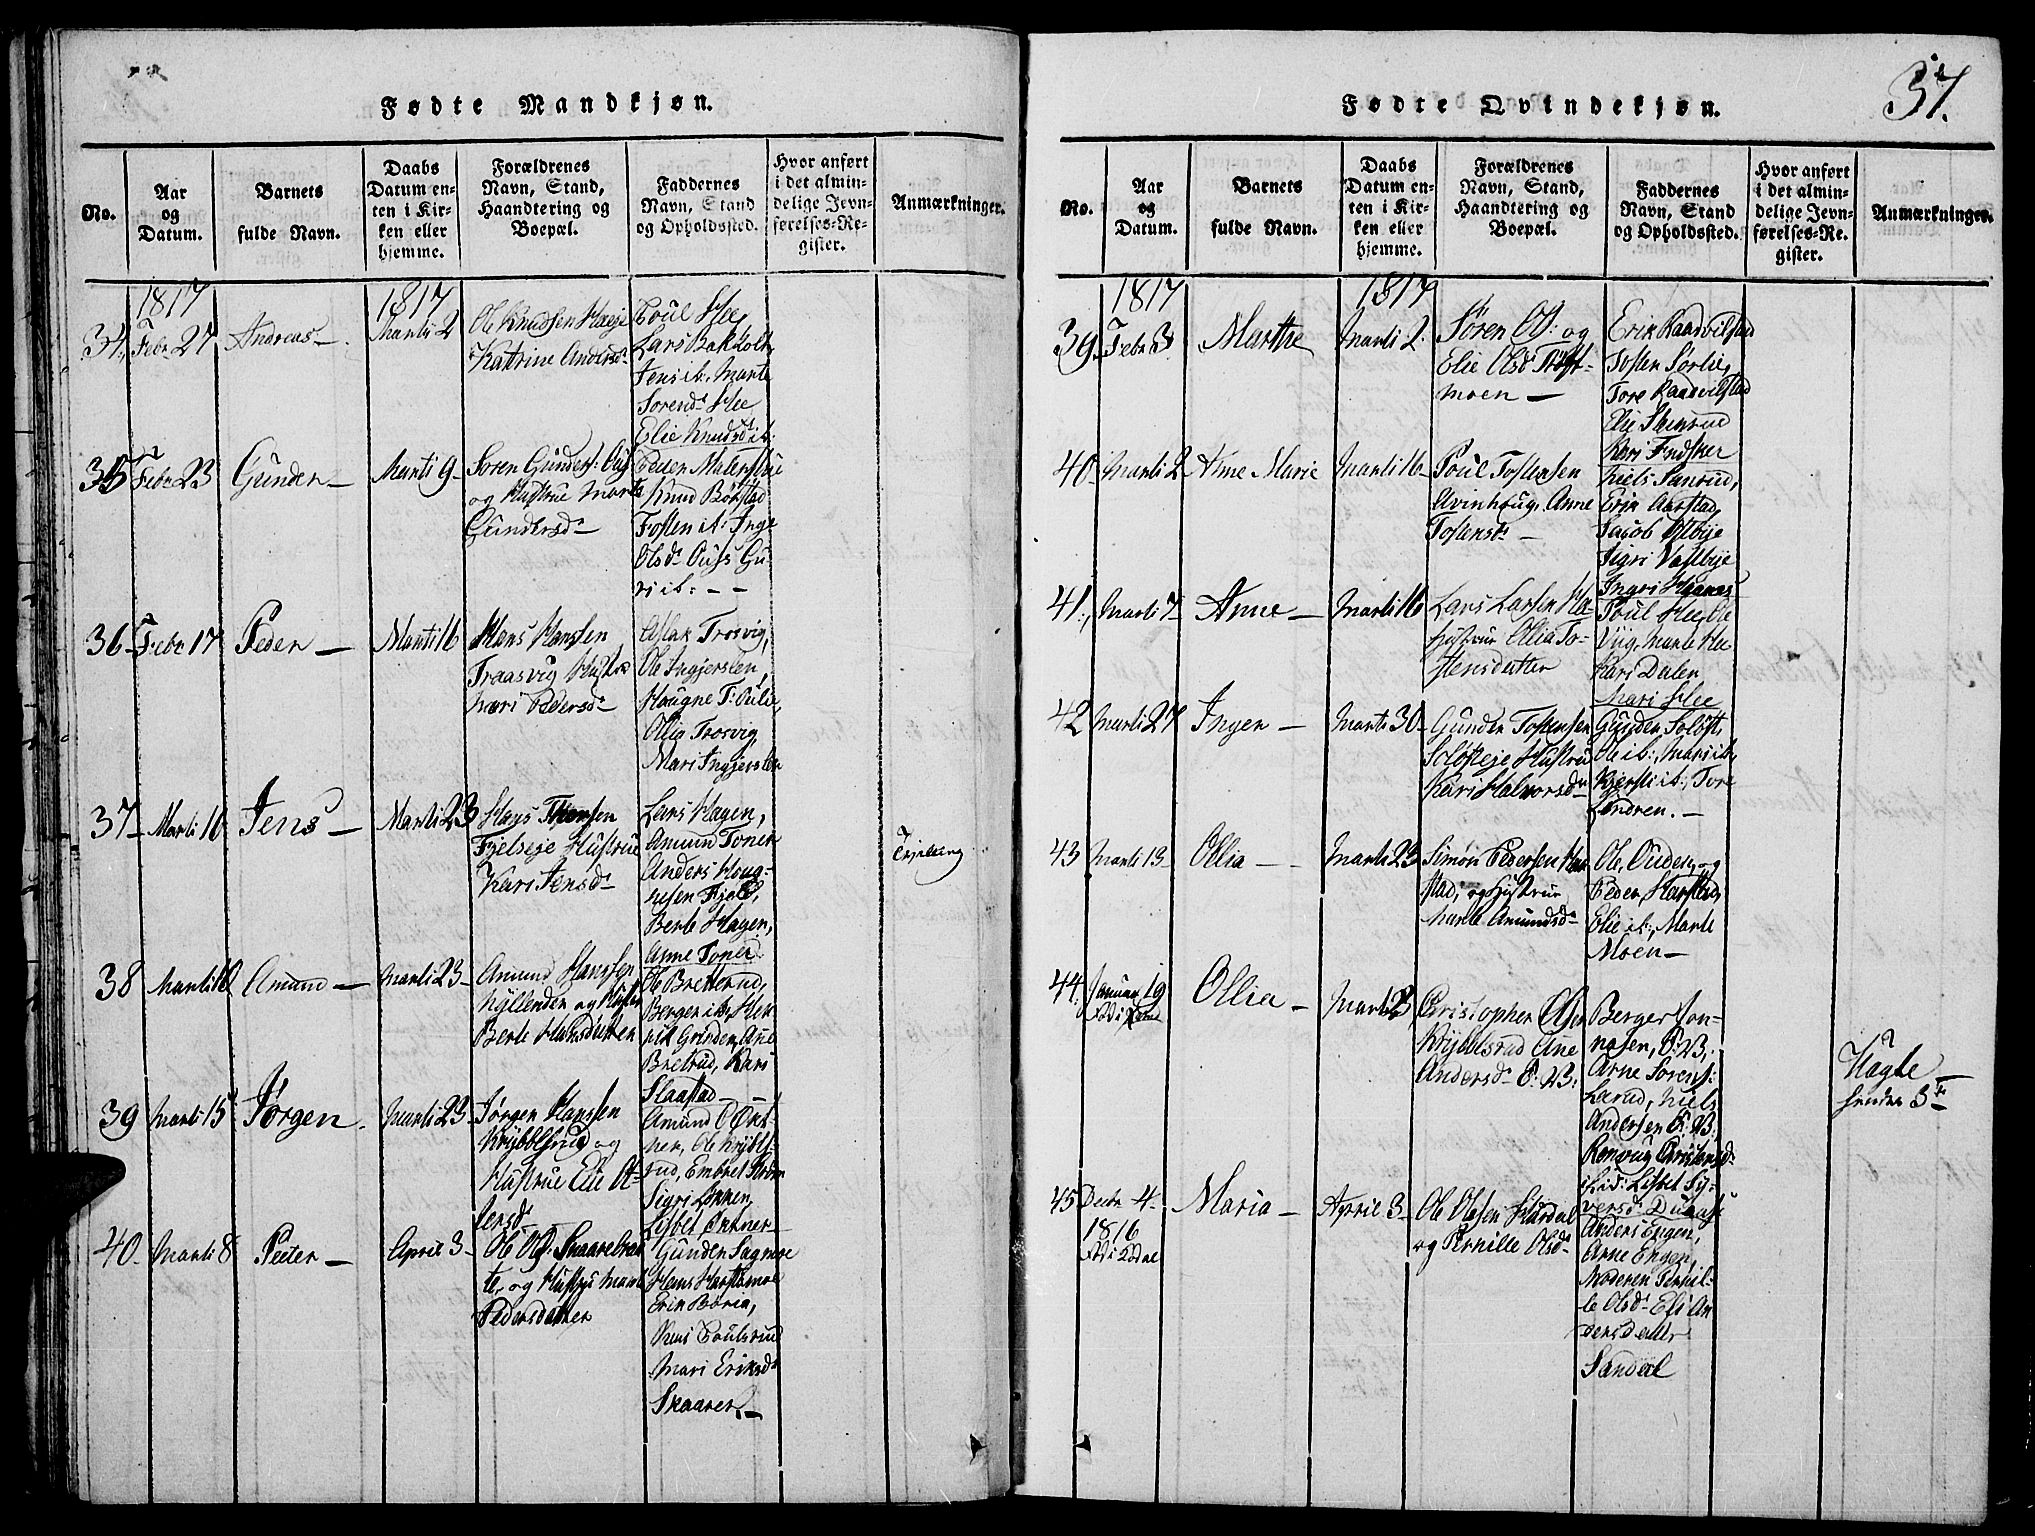 37.
Fødte Mandkjøn.
No.
Aar
og
Datum.
Barnets
fulde Navn.
Daabs
Datum en-
ten i Kir-
ken eller
hjemme.
Forældrenes
Navn, Stand,
Haandtering og
Boepæl.
Faddernes
Navn, Stand
og Opholdssted.
Hvor anført
i det almin-
delige Jevn-
førelses-Re-
gister.
Anmærkninger.
1817
1817
34,
Febr 27
Andreas -
Marti 2
Ole Knudsen
Katrine Andersd
Poul Hee,
Lars Bakholt,
Jens ib: Marte
Sørensd Hee
Elie Knudsd ib:
35
Febr 23
Gunder -
Marti 9 -
Søren Gunders:
og Hustrue Marte
Gundersd -
Peder
Knud Børstad
Tosten ib: Inge
Olsd
ri ib: - -
36 -
Febr 17
Peder -
Marti 16
Hans Hansen
Traasvig Hustrue
Mari Pedersd -
Aslak Trosvig,
Ole Ingjerslen,
Haugne
Ollia Trosvig
Mari Ingjerslen
37 -
Marti 16
Jens -
Marti 23
Hans
Fjelseje Hustrue
Kari Jensd -
Lars Hagen,
Amund Toner
Anders Houg-
nesen Fjeld,
Berte Hagen,
Anne Toner
38
Marti 10
Amund -
Marti 23 -
Amund Hanssen
og Hustru
Berte Hansdatter
Ole Bretterud,
Berger ib: Hen-
rik Grinder, Ane
Bretrud, Kari
Slaastad - -
39
Marti 15
Jørgen.
Marti 23 -
Jørgen Hanssen
og
Hustrue Elie Ol-
sensd
Amund Oxt-
ner, Ole
rud, Embret
Sigri Løkken,
Lisbet Oxtner
40 -
Marti 8
Peeter -
April 3 -
Ole Ols:
te, og Hustru Marte
Pedersdatter
Gunder Sagmoe
Hans
Erik
Poulsrud
Mari Eriksd
Skaarer. -
Fødte Qvindekjøn.
No.
Aar
og
Datum.
Barnets
fulde Navn.
Daabs
Datum en-
ten i Kir-
ken eller
hjemme.
Forældrenes
Navn, Stand,
Haandtering og
Boepæl.
Faddernes
Navn, Stand
og Opholdssted.
Hvor anført
i det almin-
delige Jevn-
førelses-Re.
gister.
Anmærkninger.
1817
1817
39 -
Febr 3
Marthe
Marti 2.
Søren Ols: og
Elie Olsd
moen -
Erik Raadvilstad
Tosten Sørlie,
Tore Raadvilstad
Elie Stenrud
Kari
40 -
Marti 2
Anne Marie
Marti 16 -
Poul Tostensen
Avinhoug, Anne
Tostensd -
Niels Sanrud,
Erik Aarstad,
Jacob
Sigri
Ingri Haanes
41.,
Marti 7
Anne -
Marti 16
Lars Larsen
Hustrue Ollia To-
stensdatter
Poul Hee, Ole
Viig, Marte Hee
Kari Dalen
Mari Hee
42
Marti 27
Inger -
Marti 30 -
Gunder Tostensen
Soløsteje Hustru
Kari Halvorsd
Gunder Soløst,
Ole ib:, Mari ib,
Kjersti ib:, Tore
Lindren. -
43
Marti 13
Ollia -
Marti 23
Simon Pedersen Har-
stad, og Hustrue
Marte Amundsd -
Ole, Ouden, og
Peder Harstad,
Elie ib:, Marte
Moen -
44.
Januar 19
Ollia -
Marti 23
Christopher Olsen
Ane
Andersd
Berger Jon-
nasen,
Arne Sørens:
Lerud, Niels
Andersen
Lisbet Sy-
versd
Uægte -
45
Decbr 4 -
1816
Maria -
Aprile 3 -
Ole Olesen
og Pernille Olsd -
Anders Engen,
Arne Engen,
Moderen Pernil-
le Olsd
dersdatter
Sandal